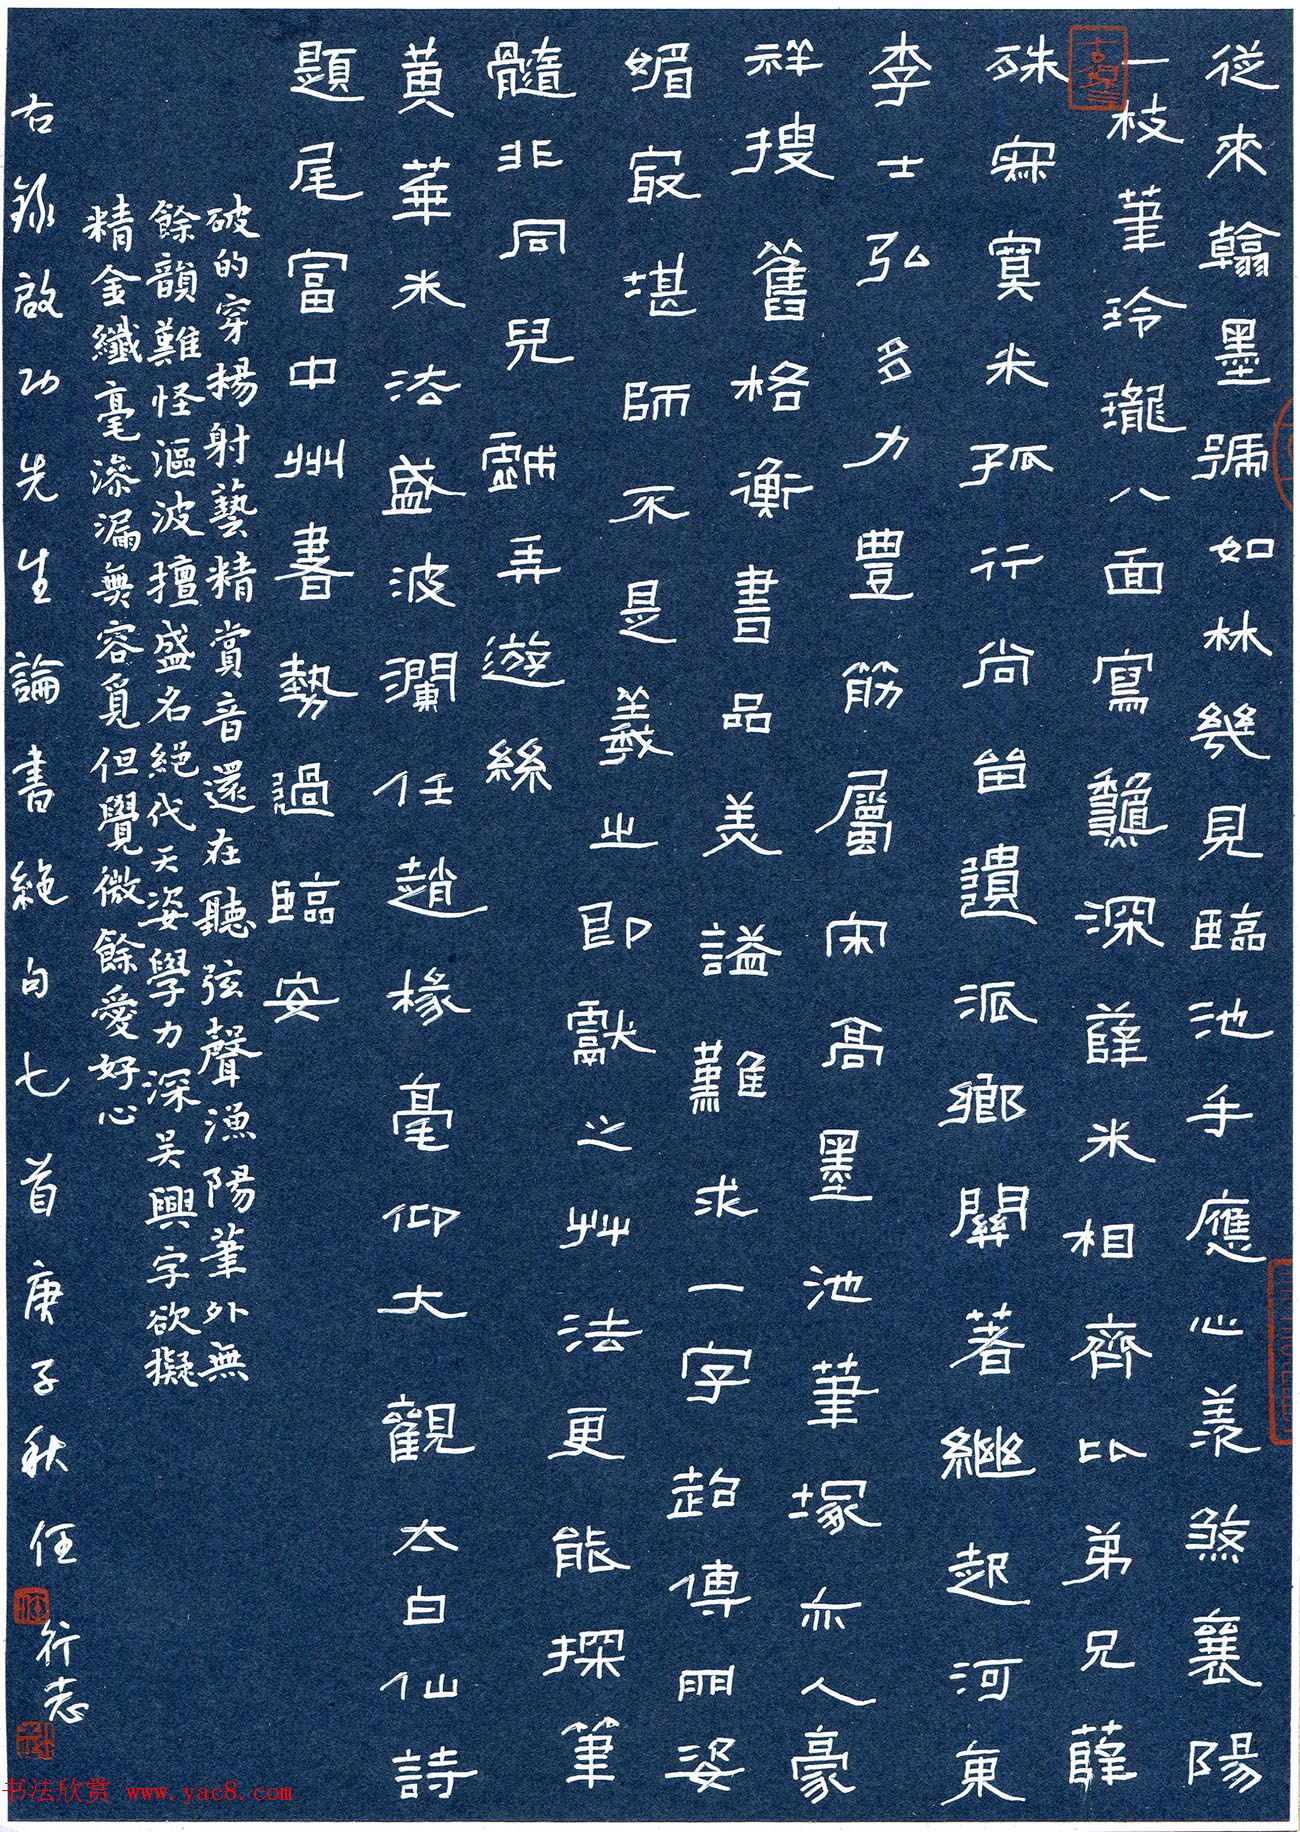 從來翰墨號如林幾見臨池手應心羨煞襄陽
一枝筆玲瓏八面寫龝深薛米相齊比弟兄薛
殊寂寞米孤行尚畱遺派鄉關著繼起河東
李士弘多力豐筋屬宋高墨池筆塚亦人豪
祥搜舊格衡書品美謚難求一字超傳門姿
媚㝡堪師不是羲之即獻之艸法更能探筆
髓非同兒戲弄遊絲
黃華米法盛波瀾任趙椽毫仰大觀太白仙詩
題尾富中州書勢過臨安
破的穿揚射藝精賞音還在聽弦聲漁陽筆外無
餘韻難怪漚波擅盛名絕代天姿學力深吳興字欲擬
精金纖毫滲漏無容覓但覺微餘愛好心
右錄啟功先生論書絕句七首庚子秋任行志
书法欣赏 www.yac8.com